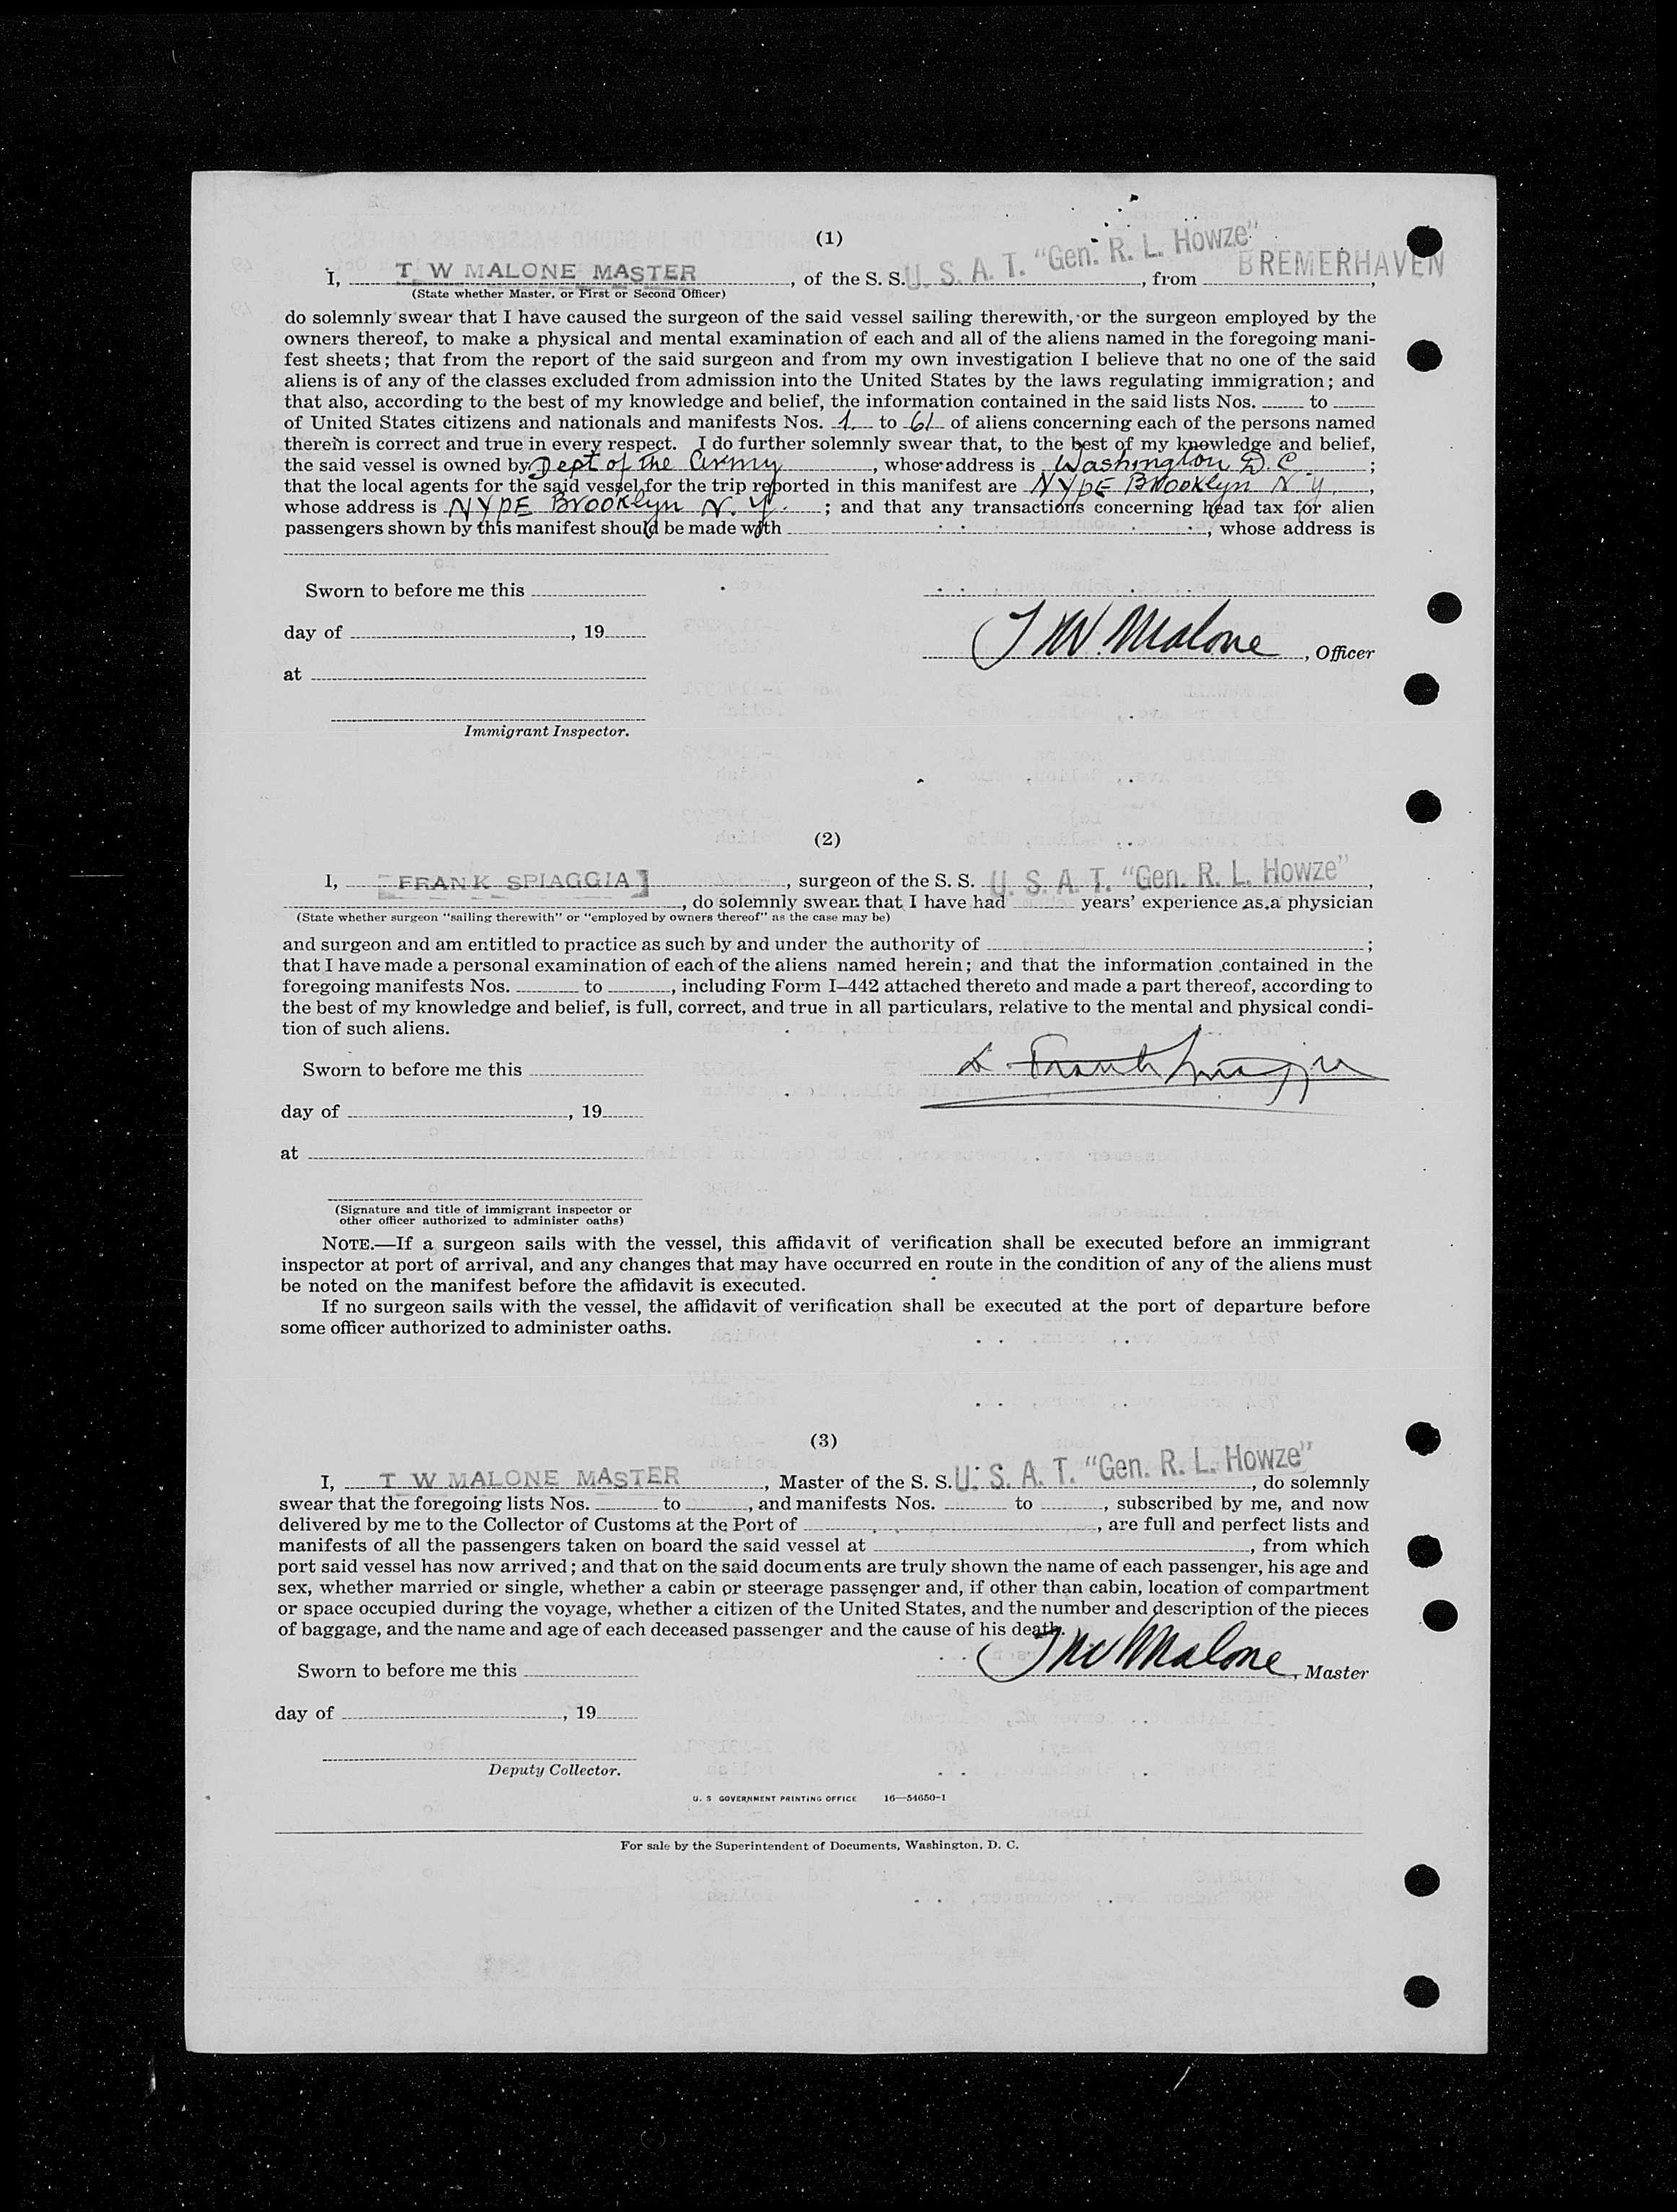 (1)
I, T W MALONE MASTER, of the S. S. U. S. A. T. "Gen. R. L. Howze", from BREMERHAVEN,
(State whether Master, or First or Second Officer)
do solemnly swear that I have caused the surgeon of the said vessel sailing therewith, or the surgeon employed by the
owners thereof, to make a physical and mental examination of each and all of the aliens named in the foregoing mani-
fest sheets; that from the report of the said surgeon and from my own investigation I believe that no one of the said
aliens is of any of the classes excluded from admission into the United States by the laws regulating immigration; and
that also, according to the best of my knowledge and belief, the information contained in the said lists Nos. to
of United States citizens and nationals and manifests Nos. 1 to 61 of aliens concerning each of the persons named
therein is correct and true in every respect. I do further solemnly swear that, to the best of my knowledge and belief,
the said vessel is owned by Dept of the Army, whose address is Washington D. C.;
that the local agents for the said vessel for the trip reported in this manifest are NYPE Brooklyn N. Y.,
whose address is NYPE Brooklyn N. Y.; and that any transactions concerning head tax for alien
passengers shown by this manifest should be made with , whose address is
Sworn to before me this
day of , 19
T W. Malone, Officer
at
Immigrant Inspector.
(2)
I, [FRANK SPIAGGIA], surgeon of the S. S. U. S. A. T. "Gen. R. L. Howze",
, do solemnly swear that I have had years' experience as a physician
(State whether surgeon "sailing therewith" or "employed by owners thereof" as the case may be)
and surgeon and am entitled to practice as such by and under the authority of ;
that I have made a personal examination of each of the aliens named herein; and that the information contained in the
foregoing manifests Nos. to , including Form I–442 attached thereto and made a part thereof, according to
the best of my knowledge and belief, is full, correct, and true in all particulars, relative to the mental and physical condi-
tion of such aliens.
Sworn to before me this
day of , 19
at
(Signature and title of immigrant inspector or
other officer authorized to administer oaths)
NOTE.—If a surgeon sails with the vessel, this affidavit of verification shall be executed before an immigrant
inspector at port of arrival, and any changes that may have occurred en route in the condition of any of the aliens must
be noted on the manifest before the affidavit is executed.
If no surgeon sails with the vessel, the affidavit of verification shall be executed at the port of departure before
some officer authorized to administer oaths.
(3)
I, T W MALONE MASTER, Master of the S. S. U. S. A. T. "Gen. R. L. Howze", do solemnly
swear that the foregoing lists Nos. to , and manifests Nos. to , subscribed by me, and now
delivered by me to the Collector of Customs at the Port of , are full and perfect lists and
manifests of all the passengers taken on board the said vessel at , from which
port said vessel has now arrived; and that on the said documents are truly shown the name of each passenger, his age and
sex, whether married or single, whether a cabin or steerage passenger and, if other than cabin, location of compartment
or space occupied during the voyage, whether a citizen of the United States, and the number and description of the pieces
of baggage, and the name and age of each deceased passenger and the cause of his death.
Sworn to before me this
T W Malone, Master
day of , 19
Deputy Collector.
U. S GOVERNMENT PRINTING OFFICE 16—54650-1
For sale by the Superintendent of Documents, Washington, D. C.